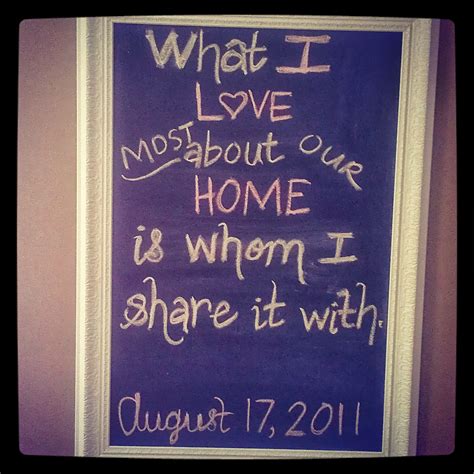 What I
LOVE
MOST about OUR
HOME
is whom I
share it with.
August 17, 2011